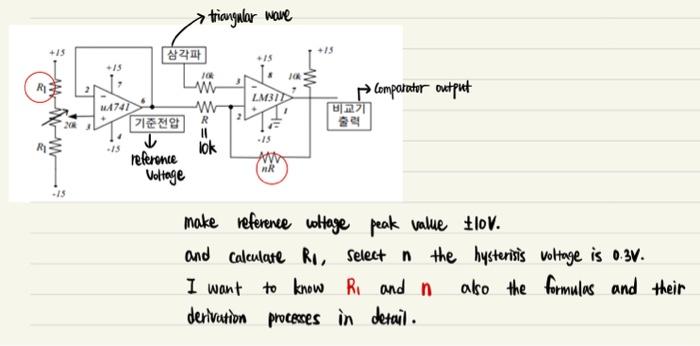 triangular wave
+15
삼각파
+15
+15
+15
R1
2
7
10k
3
8
10k
7
uA741
6
LM311
Comparator output
20k
3
기준전압
R
2
1
비교기
출력
4
4
-15
-15
R1
reference
Voltage
10k
nR
-15
make reference voltage peak value ±10V.
and calculate R1, select n the hysterisis voltage is 0.3V.
I want to know R1 and n also the formulas and their
derivation processes in detail.